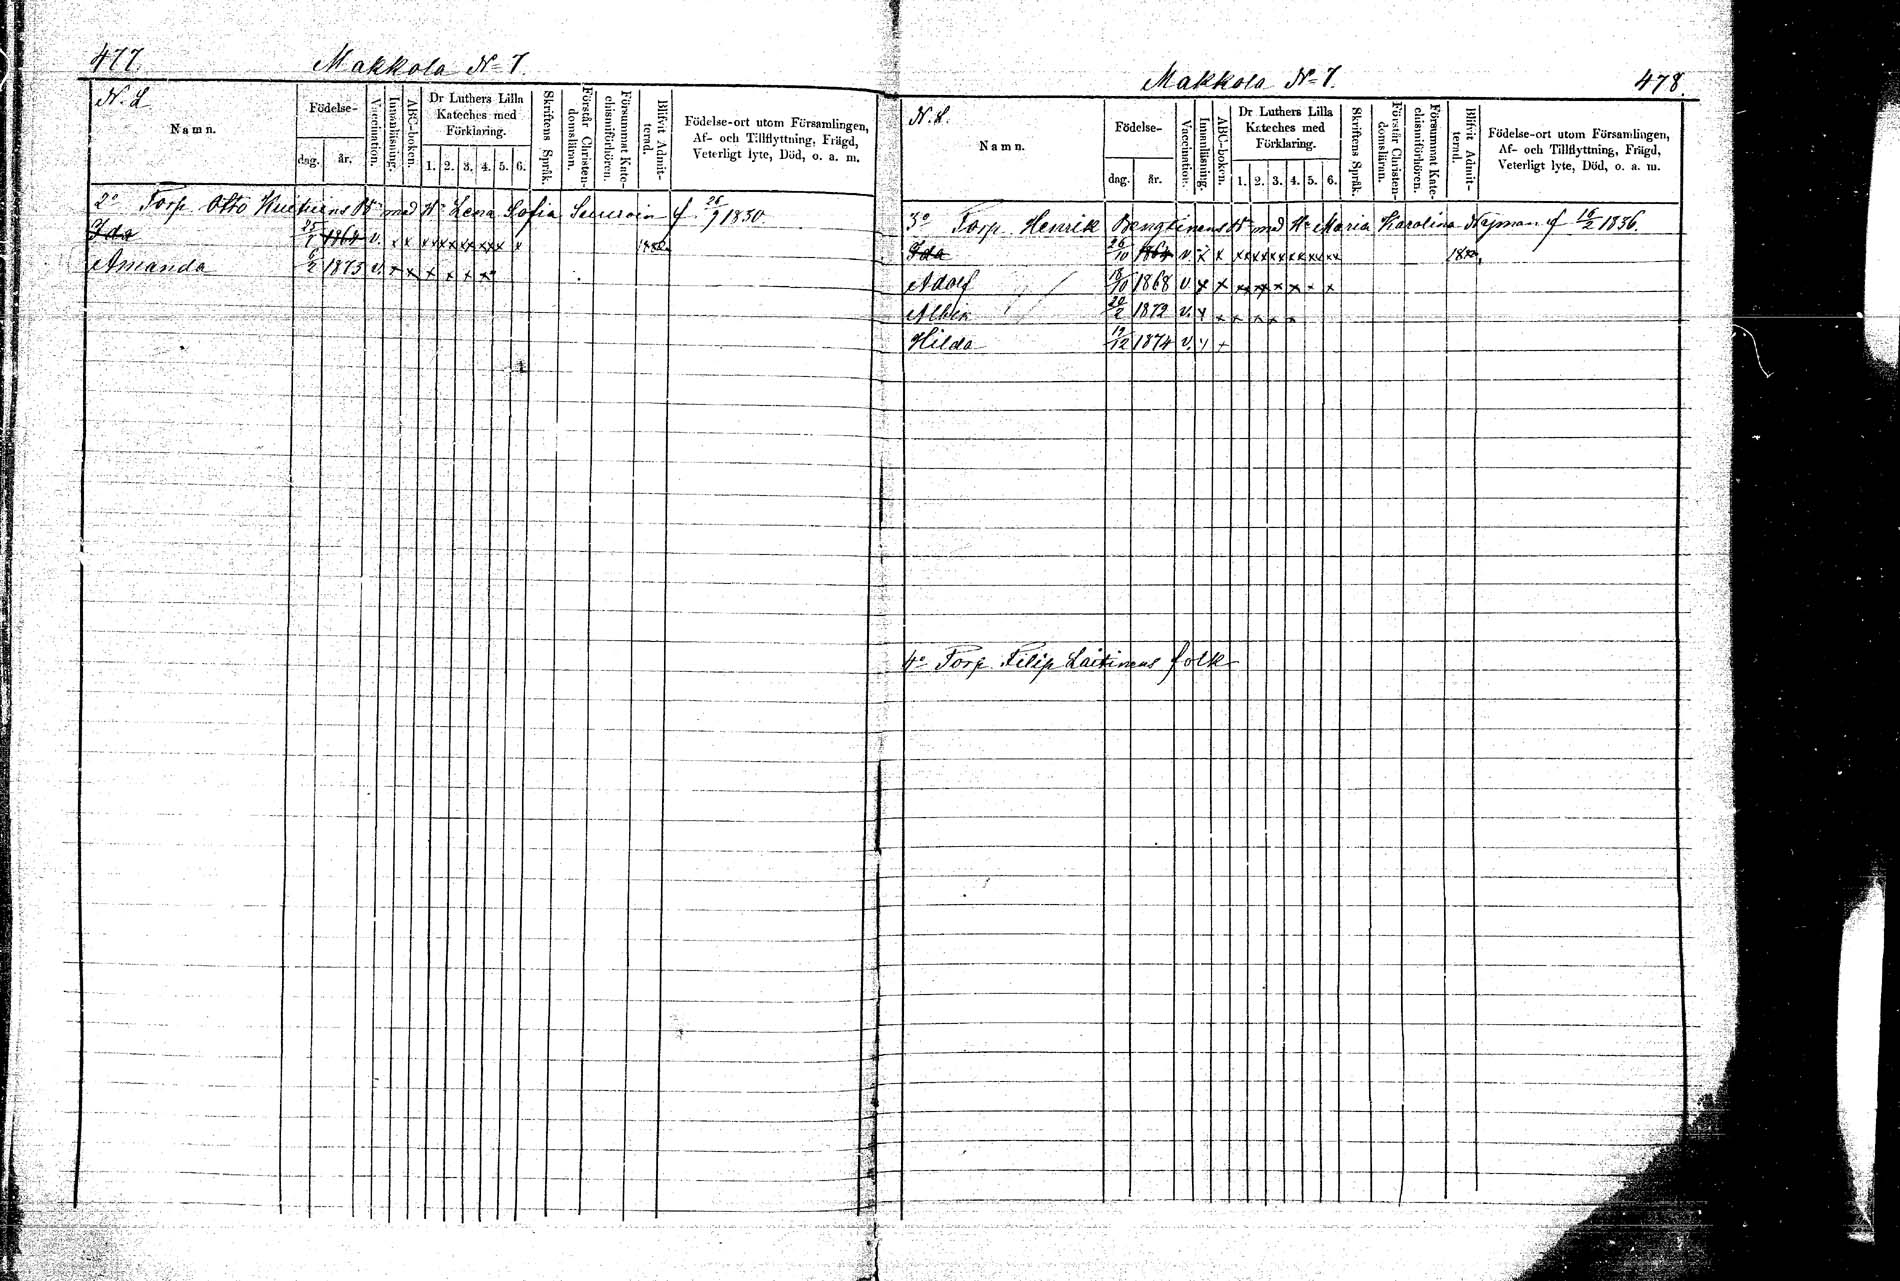 477.
Makkola N= 7.
N. L
Namn.
Födelse-
dag.
år.
Vaccination.
Innanläsning.
ABC-boken.
Dr Luthers Lilla
Kateches med
Förklaring.
1. 2. 3. 4. 5. 6.
Skriftens Språk.
Förstår Christen-
domslärnn.
Försummat Kate-
chismiförhören.
Blifvit Admit-
terad.
Födelse-ort utom Församlingen,
Af- och Tillflyttning, Frägd,
Veterligt lyte, Död, o. a. m.
2o Torp. Otto med Hu Lena Sofia f. 26/9 1830.
Ida 1864 v. x x x x x x x x x
Amanda 6/2 1875 v. x x x x x x
Makkola N= 7.
478.
N. L.
Namn.
Födelse-
dag.
år.
Vaccination.
Innanläsning.
ABC-boken.
Dr Luthers Lilla
Kateches med
Förklaring.
1. 2. 3. 4. 5. 6.
Skriftens Språk.
Förstår Christen-
domslärnn.
Försummat Kate-
chismiförhören.
Blifvit Admit-
terad.
Födelse-ort utom Församlingen,
Af- och Tillflyttning, Frägd,
Veterligt lyte, Död, o. a. m.
3o Torp. Henrik Bengtinens med Hu Maria Karolina Nyman f 16/2 1836.
Ida 26/10 1864 v. x x x x x x x x
Adolf 18/10 1868 v. x x x x x x x x
Albin 20/2 1872 v. x x x x x x
Hilda 19/12 1874 v. x x
4o Torp. Filip Laitinens folk